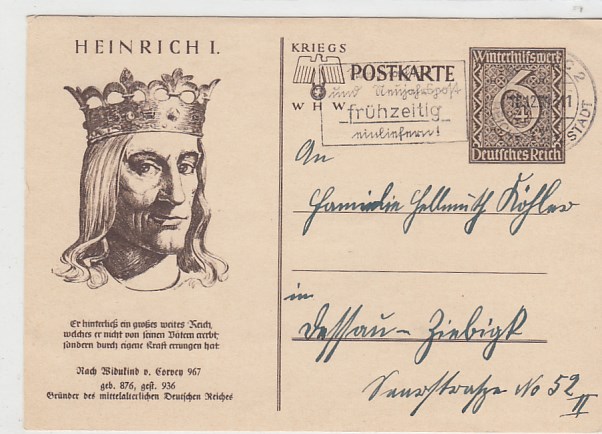 HEINRICH I.
Er hinterließ ein großes weites Reich,
welches er nicht von seinen Vätern ererbt,
sondern durch eigene Kraft errungen hat
Nach Widukind v. Corvey 967
geb. 876, gest. 936
Gründer des mittelalterlichen Deutschen Reiches
KRIEGS
WHW
POSTKARTE
und Neujahrspost
frühzeitig
einliefern!
Winterhilfswerk
6
Deutsches Reich
STADT
An
Familie Hellmuth Köhler
in
Dessau-Ziebigk
No 52
II